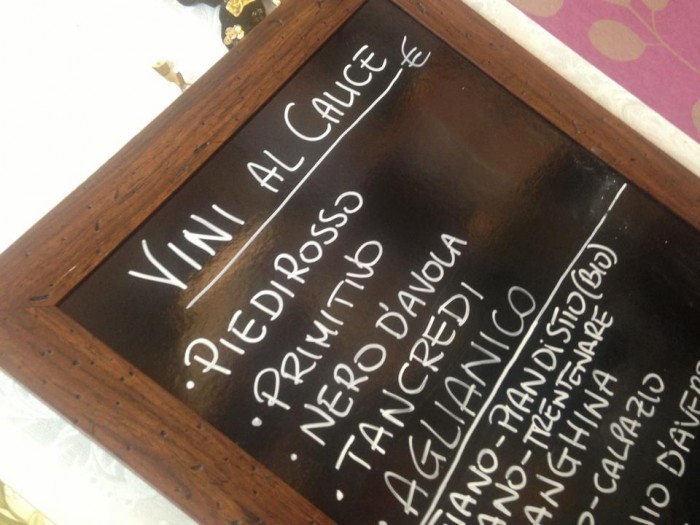 VINI AL CALICE €
• PIEDIROSSO
• PRIMITIVO
• NERO D'AVOLA
• TANCREDI
• AGLIANICO
FIANO-PIANDISTIO (BIO)
ANO-TRENTENARE
ANGHINA
O-CALPAZIO
IO D'AVER